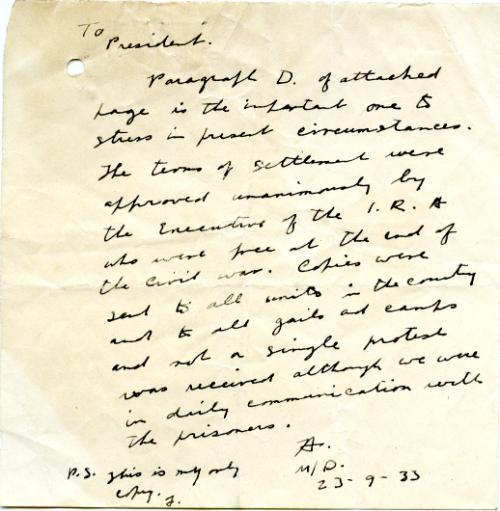 To
President.
Paragraph D. of attached
page is the important one to
stress in present circumstances.
The terms of settlement were
approved unanimously by
the Executive of the I.R.A
who were free at the end of
the civil war. Copies were
sent to all units in the country
and to all gails ad camps
and not a single protest
was received although we were
in daily communication with
the prisoners.
A.
M/D.
23-9-33
P.S. This is my only
copy.